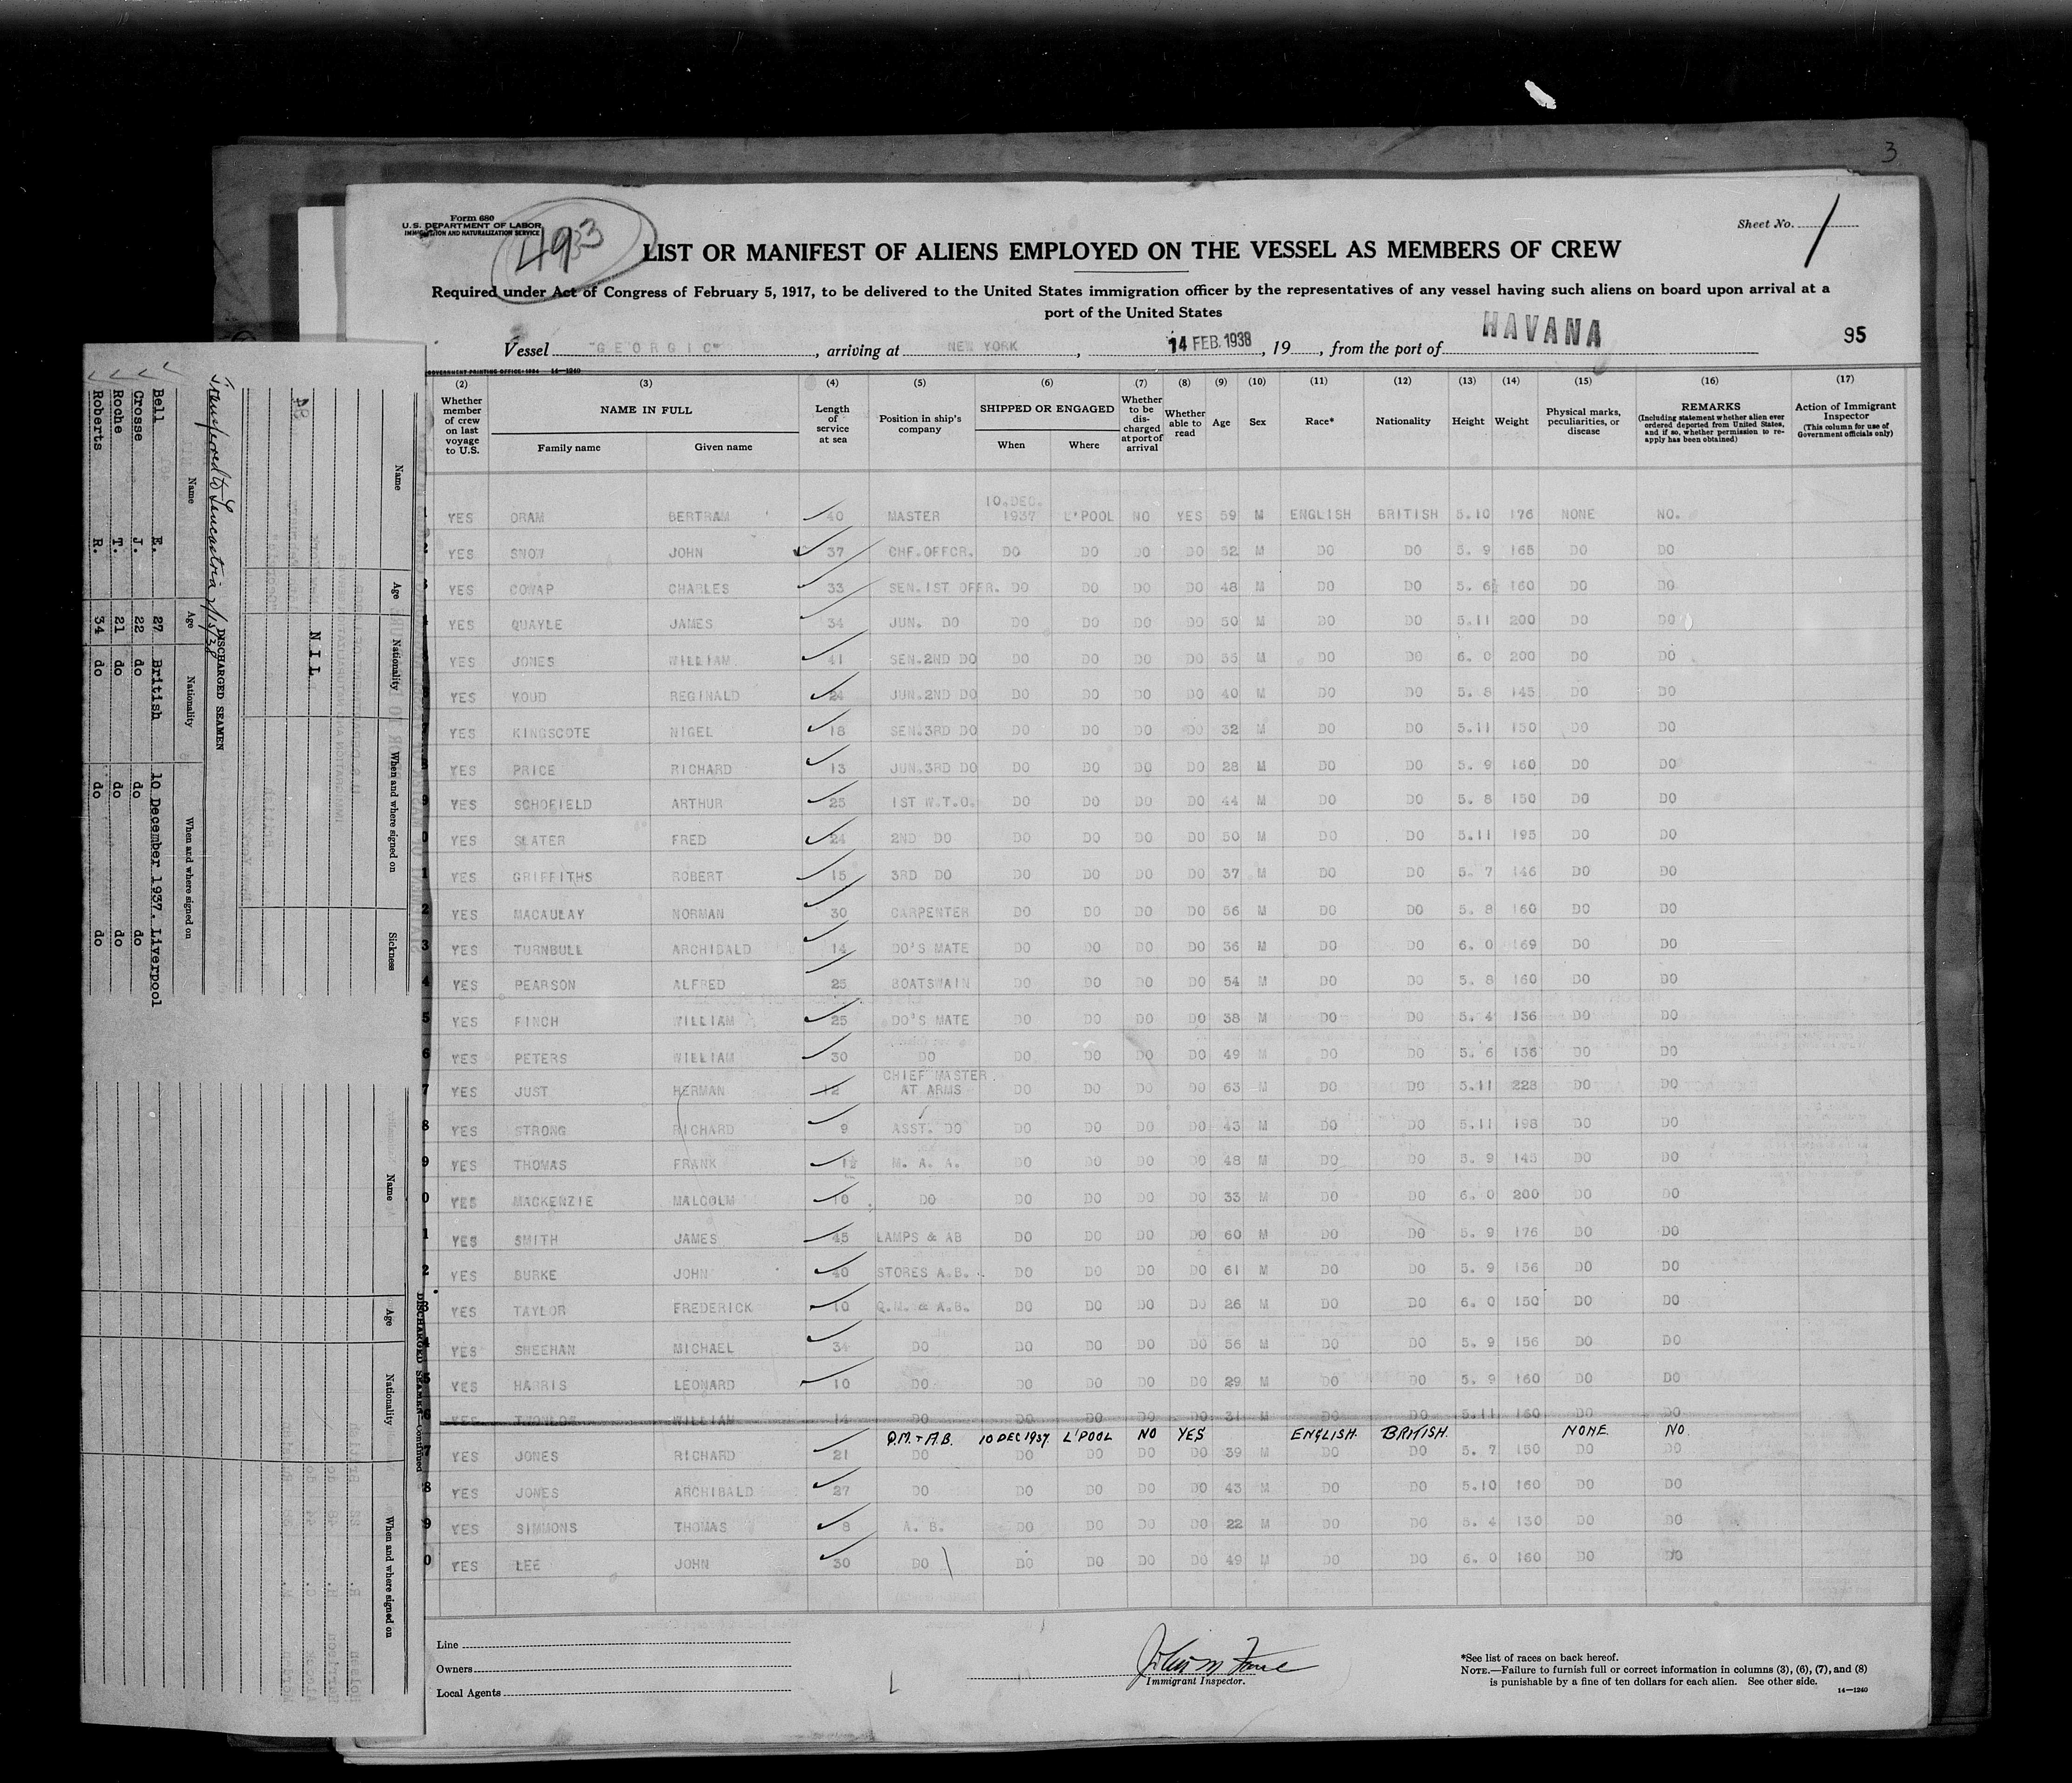 3
Form 680
U.S. DEPARTMENT OF LABOR
IMMIGRATION AND NATURALIZATION SERVICE
493
Sheet No. 1
LIST OR MANIFEST OF ALIENS EMPLOYED ON THE VESSEL AS MEMBERS OF CREW
Required under Act of Congress of February 5, 1917, to be delivered to the United States immigration officer by the representatives of any vessel having such aliens on board upon arrival at a
port of the United States
Vessel "GEORGIC", arriving at NEW YORK, 14 FEB. 1938, 19, from the port of HAVANA
95
GOVERNMENT PRINTING OFFICE: 1934 14—1240
(2) (3) (4) (5) (6) (7) (8) (9) (10) (11) (12) (13) (14) (15) (16) (17)
Whether member of crew on last voyage to U.S. NAME IN FULL Family name Given name Length of service at sea Position in ship's company SHIPPED OR ENGAGED When Where Whether to be discharged at port of arrival Whether able to read Age Sex Race* Nationality Height Weight Physical marks, peculiarities, or disease REMARKS (Including statement whether alien ever ordered deported from United States, and if so, whether permission to reapply has been obtained) Action of Immigrant Inspector (This column for use of Government officials only)
1 YES ORAM BERTRAM 40 MASTER 10.DEC. 1937 L'POOL NO YES 59 M ENGLISH BRITISH 5.10 176 NONE NO.
2 YES SNOW JOHN 37 CHF.OFFCR. DO DO DO DO 52 M DO DO 5. 9 165 DO DO
3 YES COWAP CHARLES 33 SEN.1ST OFFR. DO DO DO DO 48 M DO DO 5. 6½ 160 DO DO
YES QUAYLE JAMES 34 JUN. DO DO DO DO DO 50 M DO DO 5.11 200 DO DO
YES JONES WILLIAM 41 SEN.2ND DO DO DO DO DO 55 M DO DO 6. 0 200 DO DO
YES YOUD REGINALD 24 JUN.2ND DO DO DO DO DO 40 M DO DO 5. 8 145 DO DO
7 YES KINGSCOTE NIGEL 18 SEN.3RD DO DO DO DO DO 32 M DO DO 5.11 150 DO DO
YES PRICE RICHARD 13 JUN.3RD DO DO DO DO DO 28 M DO DO 5. 9 160 DO DO
9 YES SCHOFIELD ARTHUR 25 1ST W.T.O. DO DO DO DO 44 M DO DO 5. 8 150 DO DO
0 YES SLATER FRED 24 2ND DO DO DO DO DO 50 M DO DO 5.11 195 DO DO
1 YES GRIFFITHS ROBERT 15 3RD DO DO DO DO DO 37 M DO DO 5. 7 146 DO DO
2 YES MACAULAY NORMAN 30 CARPENTER DO DO DO DO 56 M DO DO 5. 8 160 DO DO
3 YES TURNBULL ARCHIBALD 14 DO'S MATE DO DO DO DO 36 M DO DO 6. 0 169 DO DO
4 YES PEARSON ALFRED 25 BOATSWAIN DO DO DO DO 54 M DO DO 5. 8 160 DO DO
5 YES FINCH WILLIAM 25 DO'S MATE DO DO DO DO 38 M DO DO 5. 4 136 DO DO
6 YES PETERS WILLIAM 30 DO DO DO DO DO 49 M DO DO 5. 6 DO DO
7 YES JUST HERMAN 12 CHIEF MASTER AT ARMS DO DO DO DO 63 M DO DO 5.11 228 DO DO
8 YES STRONG RICHARD 9 ASST. DO DO DO DO DO 43 M DO DO 5.11 198 DO DO
9 YES THOMAS FRANK 1½ M. A. A. DO DO DO DO 48 M DO DO 5. 9 145 DO DO
0 YES MACKENZIE MALCOLM 10 DO DO DO DO DO 33 M DO DO 6. 0 200 DO DO
1 YES SMITH JAMES 45 LAMPS & AB DO DO DO DO 60 M DO DO 5. 9 176 DO DO
2 YES BURKE JOHN 40 STORES A.B. DO DO DO DO 61 M DO DO 5. 9 156 DO DO
3 YES TAYLOR FREDERICK 10 Q.M. & A.B. DO DO DO DO 26 M DO DO 6. 0 150 DO DO
4 YES SHEEHAN MICHAEL 34 DO DO DO DO DO 56 M DO DO 5. 9 156 DO DO
5 YES HARRIS LEONARD 10 DO DO DO DO DO 29 M DO DO 5. 9 160 DO DO
6 YES TWONLOW WILLIAM 14 DO DO DO DO DO 31 M DO DO 5.11 160 DO DO
Q.M. + A.B. 10 DEC 1937 L'POOL NO YES ENGLISH. BRITISH. NONE NO
7 YES JONES RICHARD 21 DO DO DO DO DO 39 M DO DO 5. 7 150 DO DO
8 YES JONES ARCHIBALD 27 DO DO DO DO DO 43 M DO DO 5.10 160 DO DO
9 YES SIMMONS THOMAS 8 A. B. DO DO DO DO 22 M DO DO 5. 4 130 DO DO
0 YES LEE JOHN 30 DO DO DO DO DO 49 M DO DO 6. 0 160 DO DO
Line
Owners
Local Agents
Immigrant Inspector.
*See list of races on back hereof.
NOTE.—Failure to furnish full or correct information in columns (3), (6), (7), and (8)
is punishable by a fine of ten dollars for each alien. See other side.
14—1240
Name Age Nationality When and where signed on Sickness
48
NIL
DISCHARGED SEAMEN
Transferred to Lancastria 2/15/38
Name Age Nationality When and where signed on
Bell E. 27 British 10 December 1937. Liverpool
Crosse J. 22 do do do
Roche T. 21 do do do
Roberts R. 34 do do do
DISCHARGED SEAMEN—Continued
Name Age Nationality When and where signed on